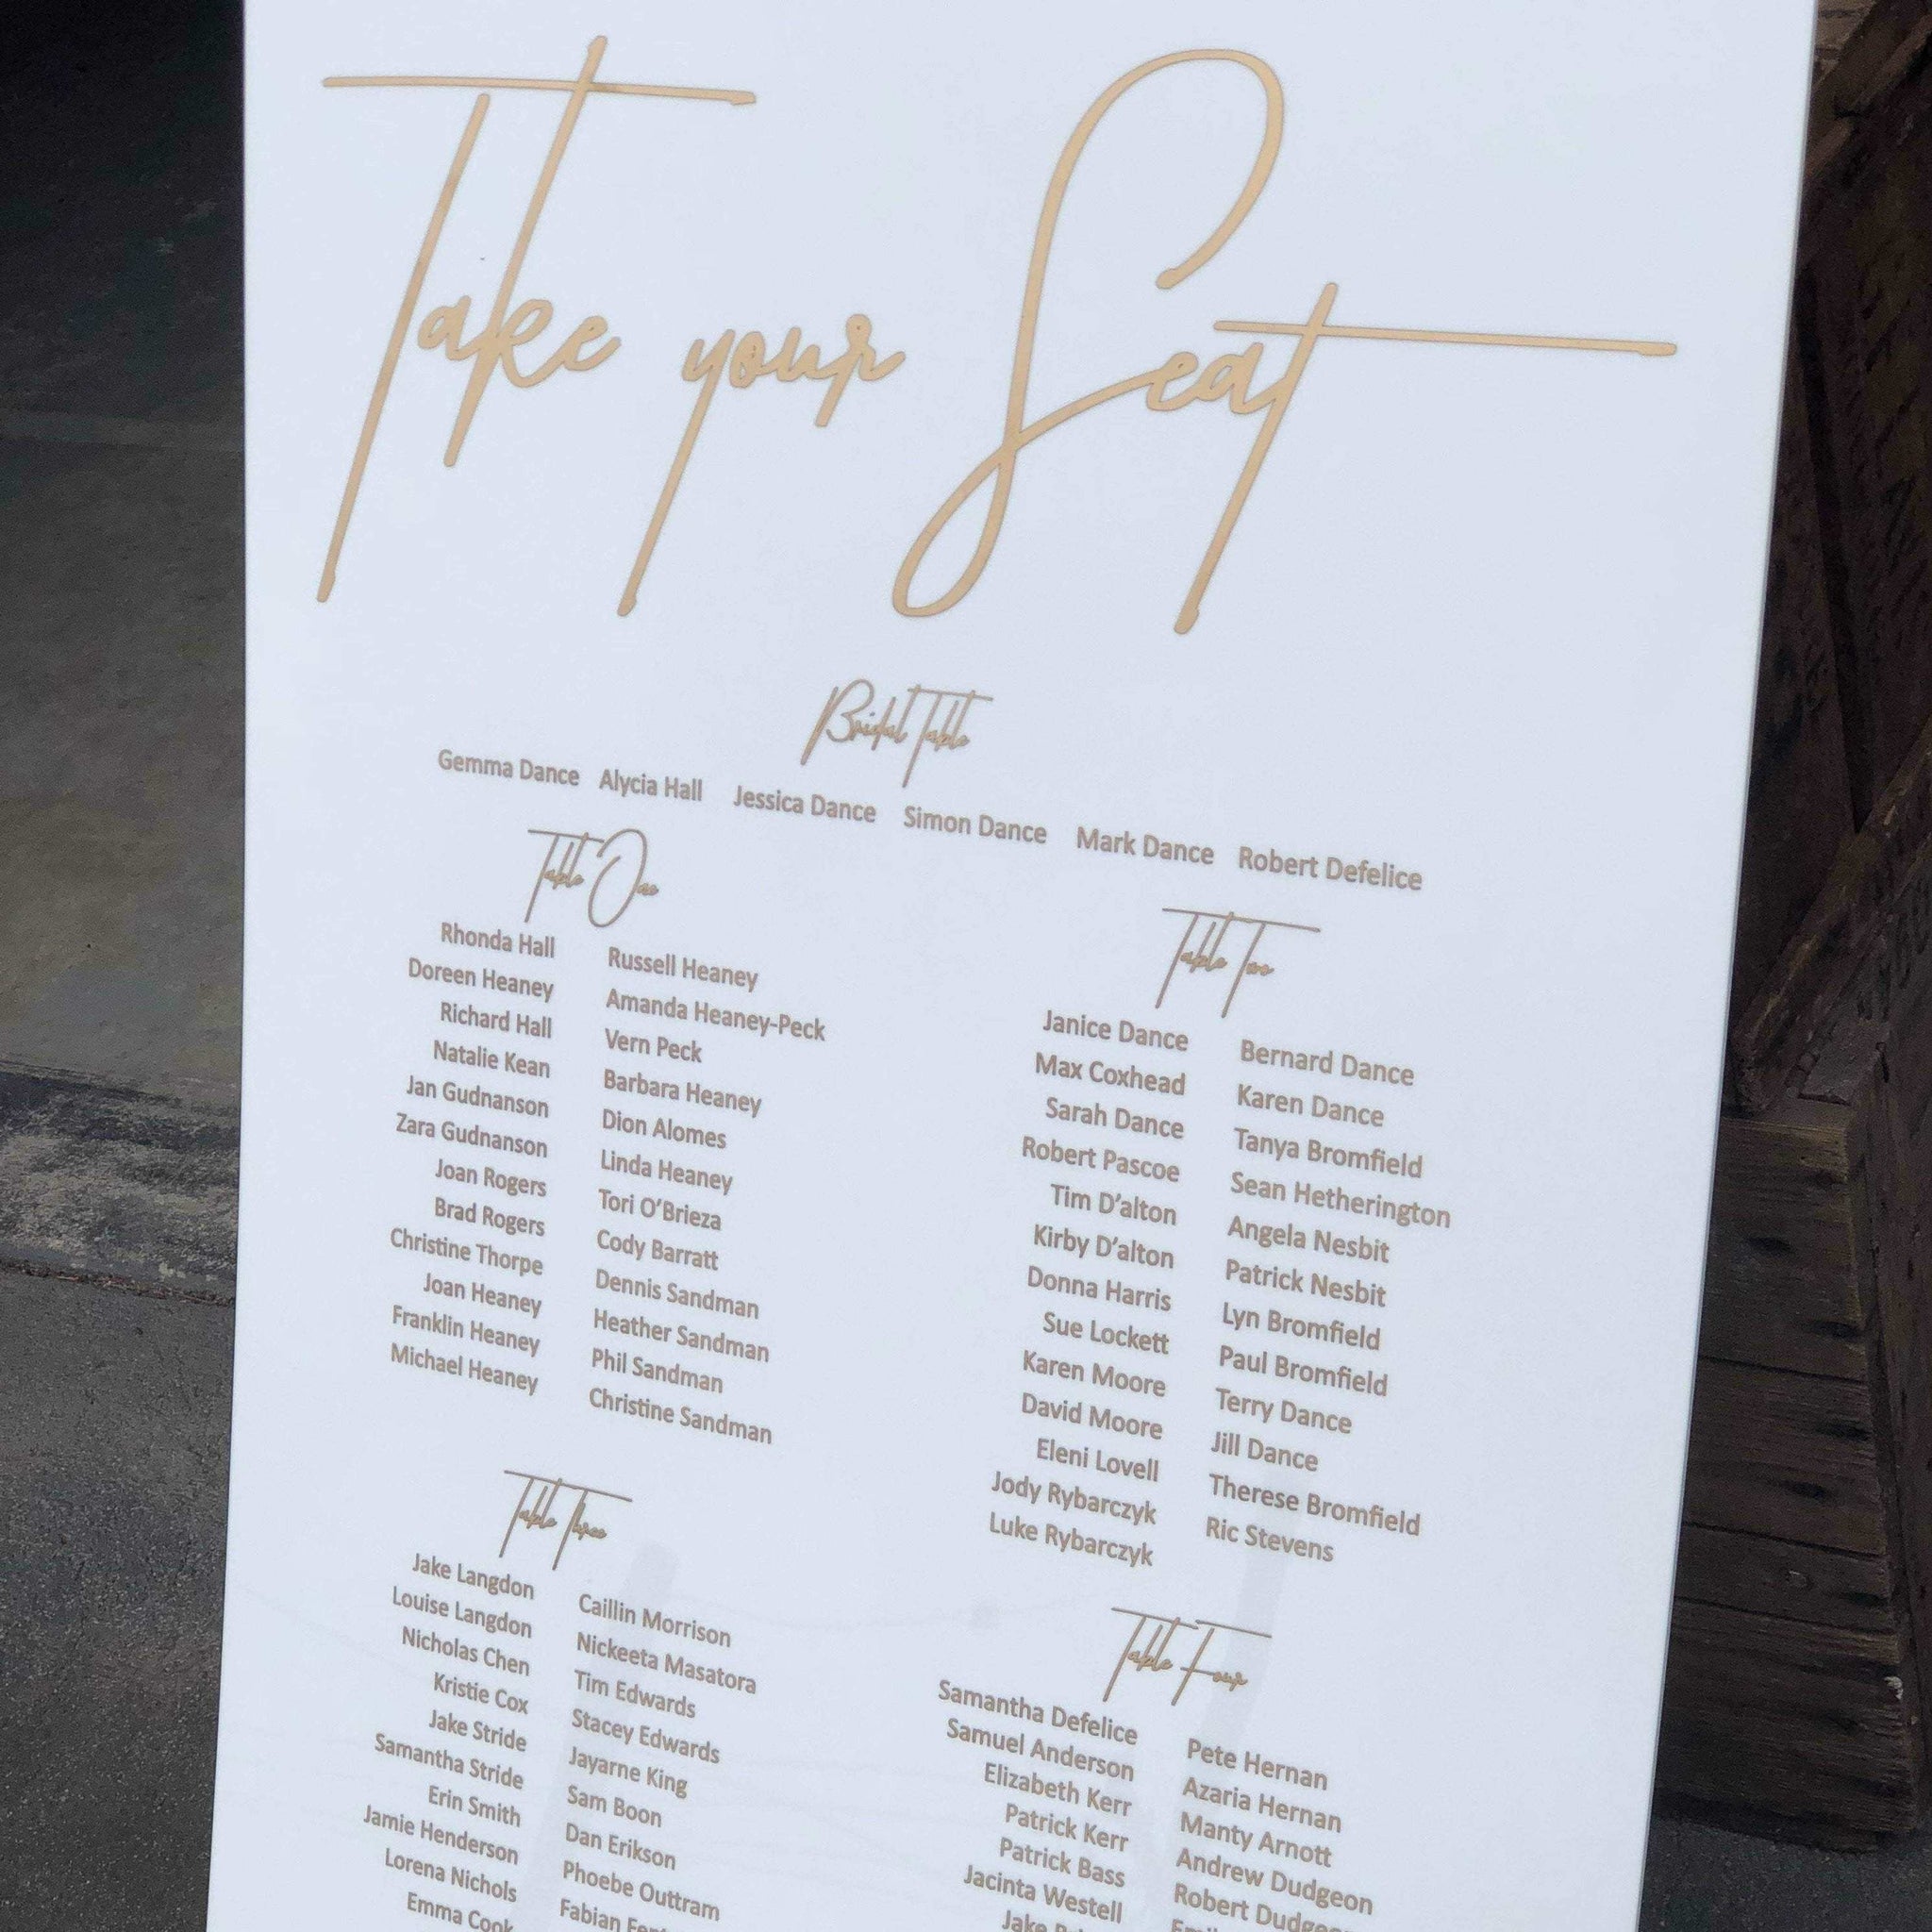 Take your Seat
Bridal Table
Gemma Dance Alycia Hall Jessica Dance Simon Dance Mark Dance Robert Defelice
Table One
Rhonda Hall
Doreen Heaney
Richard Hall
Natalie Kean
Jan Gudnanson
Zara Gudnanson
Joan Rogers
Brad Rogers
Christine Thorpe
Joan Heaney
Franklin Heaney
Michael Heaney
Russell Heaney
Amanda Heaney-Peck
Vern Peck
Barbara Heaney
Dion Alomes
Linda Heaney
Tori O'Brieza
Cody Barratt
Dennis Sandman
Heather Sandman
Phil Sandman
Christine Sandman
Table Two
Janice Dance
Max Coxhead
Sarah Dance
Robert Pascoe
Tim D'alton
Kirby D'alton
Donna Harris
Sue Lockett
Karen Moore
David Moore
Eleni Lovell
Jody Rybarczyk
Luke Rybarczyk
Bernard Dance
Karen Dance
Tanya Bromfield
Sean Hetherington
Angela Nesbit
Patrick Nesbit
Lyn Bromfield
Paul Bromfield
Terry Dance
Jill Dance
Therese Bromfield
Ric Stevens
Table Three
Jake Langdon
Louise Langdon
Nicholas Chen
Kristie Cox
Jake Stride
Samantha Stride
Erin Smith
Jamie Henderson
Lorena Nichols
Emma Cook
Caillin Morrison
Nickeeta Masatora
Tim Edwards
Stacey Edwards
Jayarne King
Sam Boon
Dan Erikson
Phoebe Outtram
Fabian
Table Four
Samantha Defelice
Samuel Anderson
Elizabeth Kerr
Patrick Kerr
Patrick Bass
Jacinta Westell
Jake
Pete Hernan
Azaria Hernan
Manty Arnott
Andrew Dudgeon
Robert Dudgeon